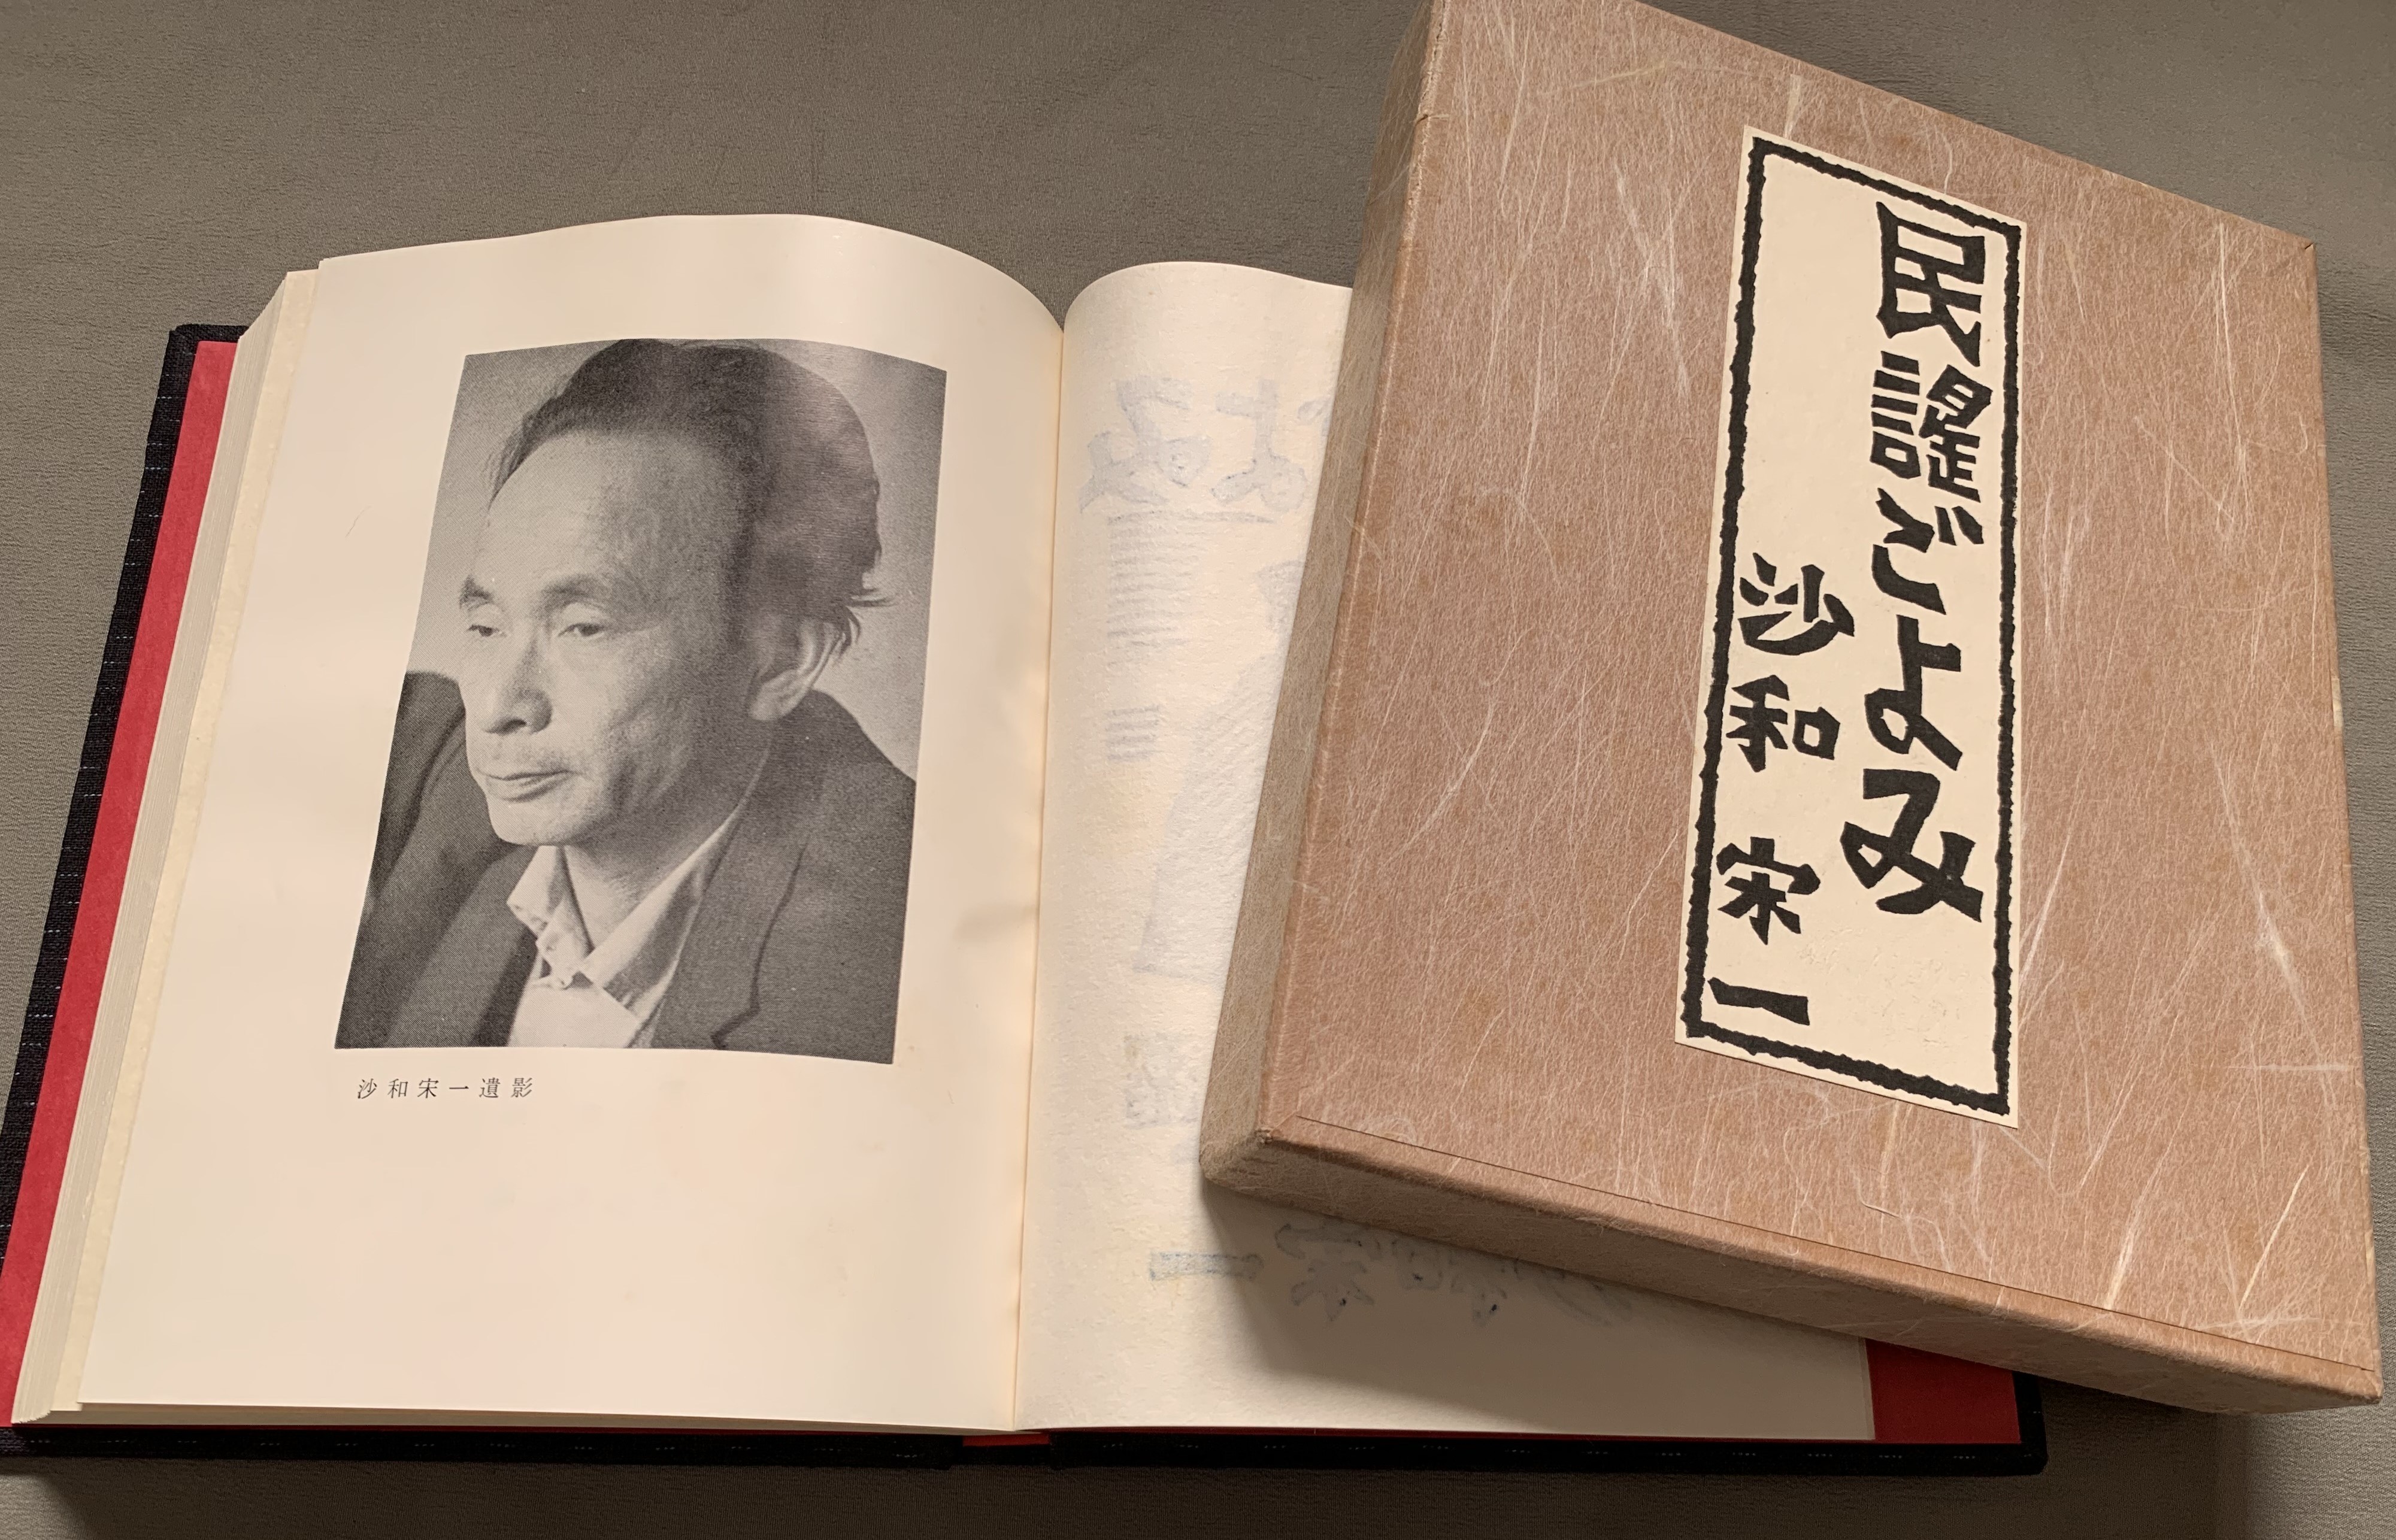 民謡ごよみ
沙和宋一
沙和宋一遺影